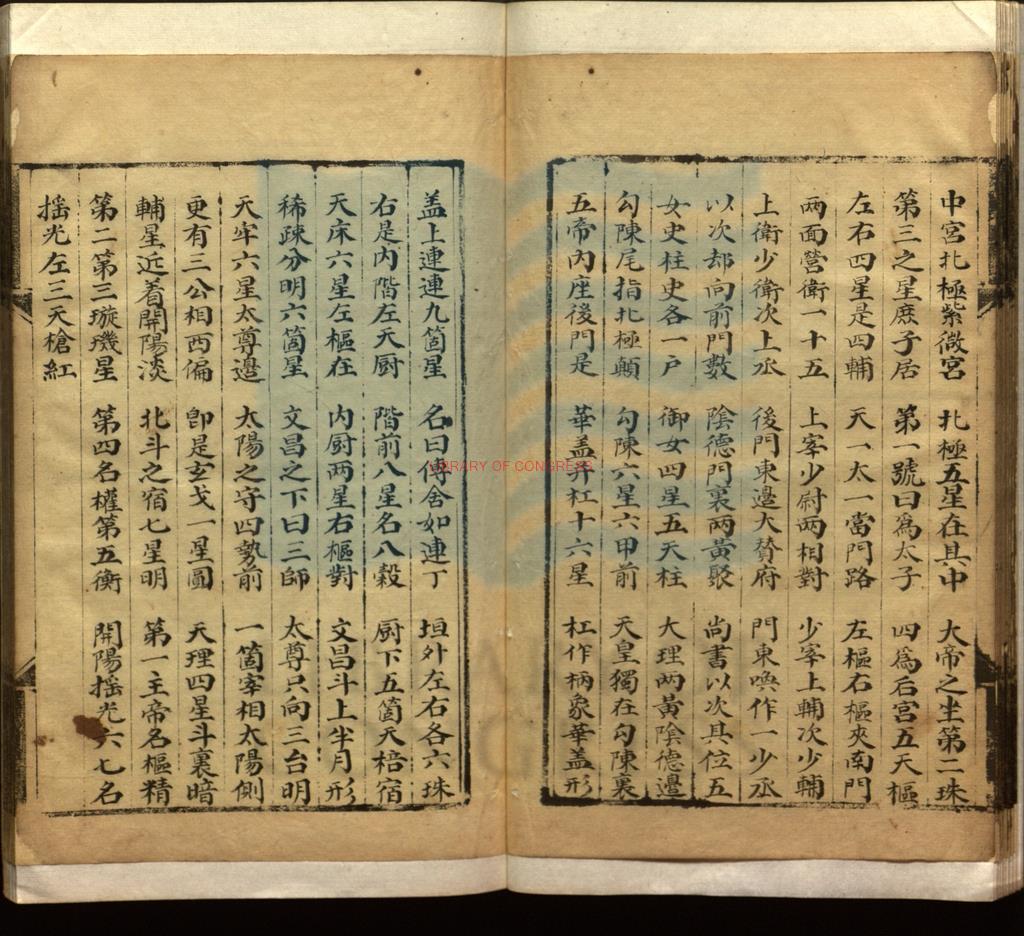 中宮北極紫微宮 北極五星在其中 大帝之坐第二珠
第三之星庶子居 第一號曰為太子 四為后宮五天樞
左右四星是四輔 天一太一當門路 左樞右樞夾南門
兩面營衛一十五 上宰少尉兩相對 少宰上輔次少輔
上衛少衛次上丞 後門東邊大贊府 門東喚作一少丞
以次却向前門數 陰德門裏兩黃聚 尚書以次其位五
女史柱史各一户 御女四星五天柱 大理兩黃陰德邊
勾陳尾指北極顛 勾陳六星六甲前 天皇獨在勾陳裏
五帝內座後門是 華盖并杠十六星 杠作柄象華盖形
盖上連連九箇星 名曰傅舍如連丁 垣外左右各六珠
右是內階左天厨 階前八星名八穀 厨下五箇天棓宿
天床六星左樞在 內厨兩星右樞對 文昌斗上半月形
稀疎分明六箇星 文昌之下曰三師 太尊只向三台明
天牢六星太尊邊 太陽之守四勢前 一箇宰相太陽側
更有三公相西偏 卽是玄戈一星圓 天理四星斗裏暗
輔星近着開陽淡 北斗之宿七星明 第一主帝名樞精
第二第三璇璣星 第四名權第五衡 開陽揺光六七名
揺光左三天槍紅
LIBRARY OF CONGRESS